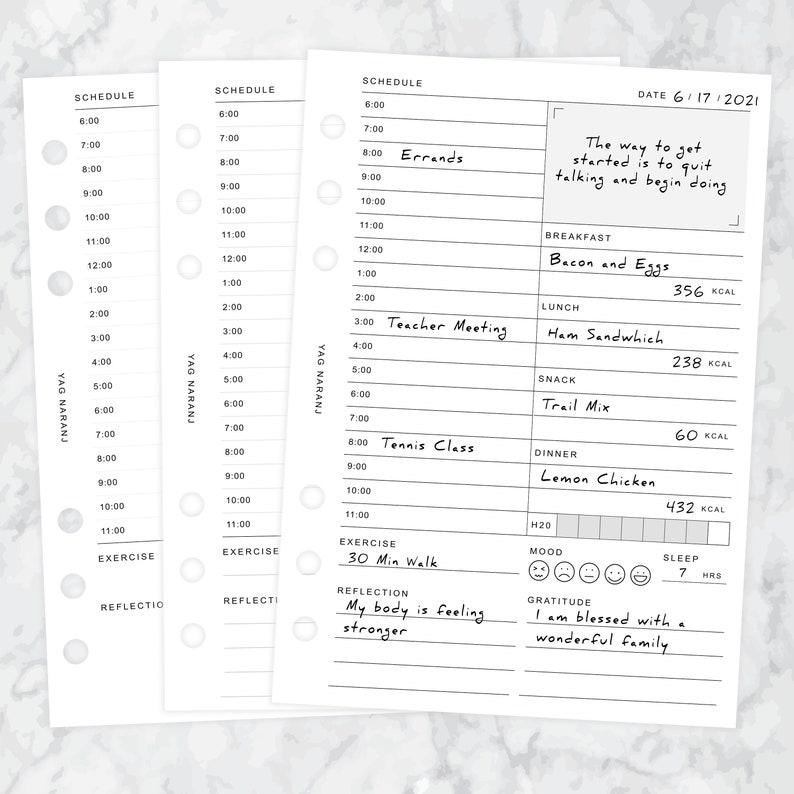 SCHEDULE
6:00
7:00
8:00
9:00
10:00
11:00
12:00
1:00
2:00
3:00
4:00
5:00
6:00
7:00
8:00
9:00
10:00
11:00
EXERCISE
REFLECTIO
YAG NARANJ
SCHEDULE
6:00
7:00
8:00
9:00
10:00
11:00
12:00
1:00
2:00
3:00
4:00
5:00
6:00
7:00
8:00
9:00
10:00
11:00
EXERCISE
REFLECT
YAG NARANJ
SCHEDULE
DATE 6 / 17 / 2021
6:00
7:00
8:00 Errands
9:00
10:00
11:00
12:00
1:00
2:00
3:00 Teacher Meeting
4:00
5:00
6:00
7:00
8:00 Tennis Class
9:00
10:00
11:00
YAG NARANJ
The way to get
started is to quit
talking and begin doing
BREAKFAST
Bacon and Eggs
356 KCAL
LUNCH
Ham Sandwhich
238 KCAL
SNACK
Trail Mix
60 KCAL
DINNER
Lemon Chicken
432 KCAL
H20
EXERCISE
30 Min Walk
MOOD
SLEEP
7 HRS
REFLECTION
My body is feeling
stronger
GRATITUDE
I am blessed with a
wonderful family